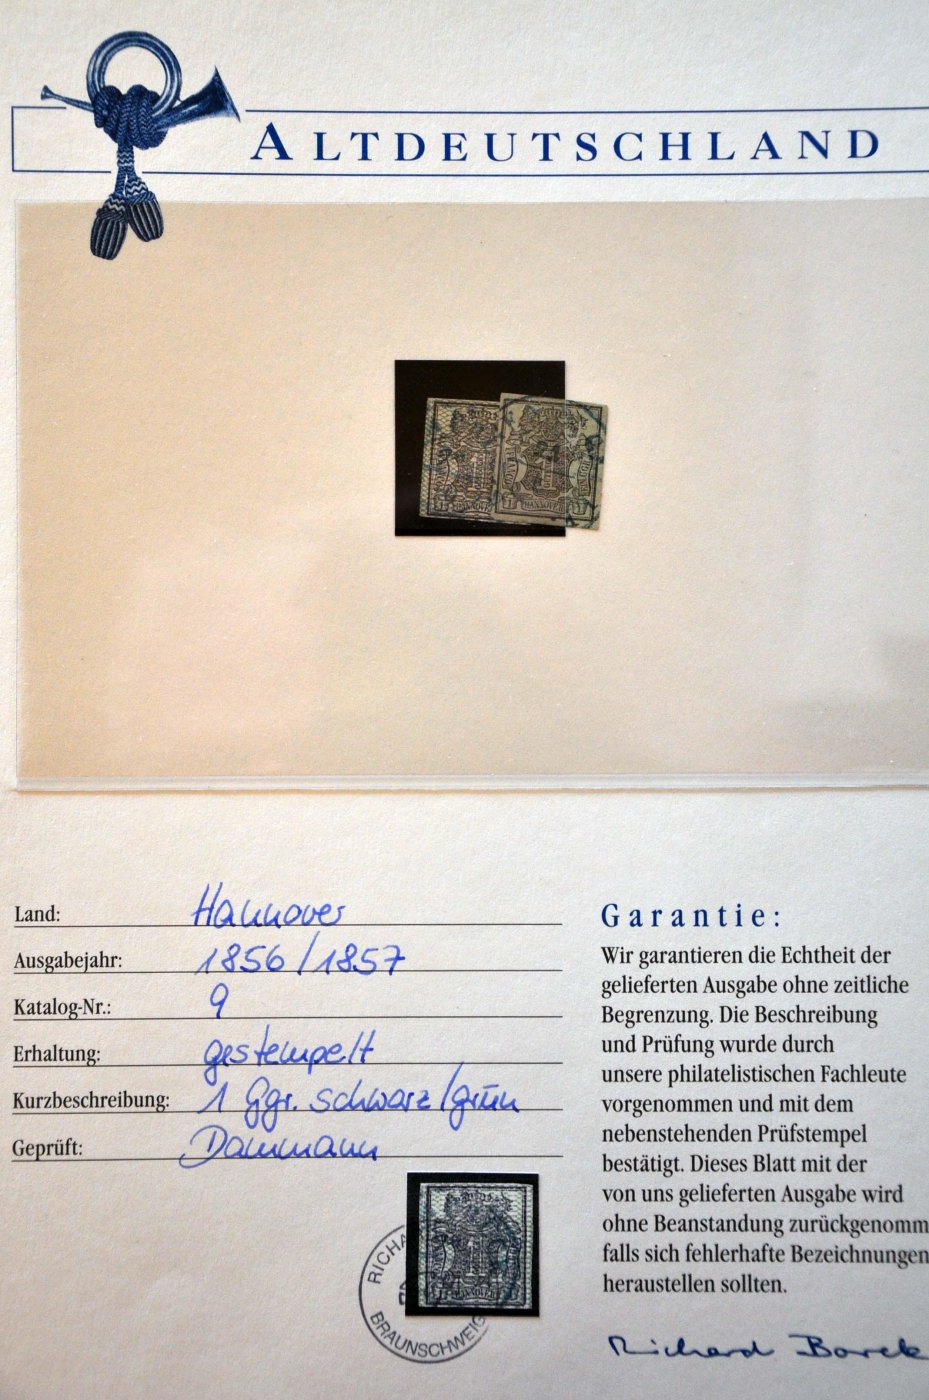 ALTDEUTSCHLAND
HANNOVER
Land: Hannover
Ausgabejahr: 1856/1857
Katalog-Nr.: 9
Erhaltung: gestempelt
Kurzbeschreibung: 1 Ggr. schwarz/grün
Geprüft: Dammann
RICHA
BRAUNSCHWEIG
Garantie:
Wir garantieren die Echtheit der
gelieferten Ausgabe ohne zeitliche
Begrenzung. Die Beschreibung
und Prüfung wurde durch
unsere philatelistischen Fachleute
vorgenommen und mit dem
nebenstehenden Prüfstempel
bestätigt. Dieses Blatt mit der
von uns gelieferten Ausgabe wird
ohne Beanstandung zurückgenomm
falls sich fehlerhafte Bezeichnungen
heraustellen sollten.
Richard Borek